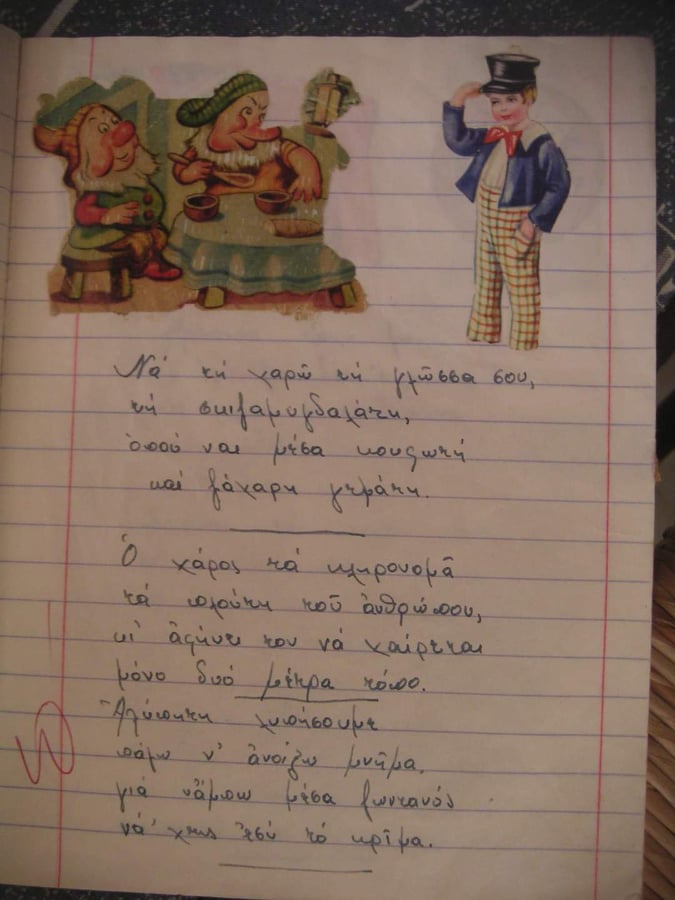 Νά τή χαρῶ τή γλῶσσα σου,
τή σκιζαμυγδαλάτη,
ὁπού ναι μέσα κουφωτή
καί ζάχαρη γεμάτη.
Ὁ χάρος τά κληρονομᾶ
τά πλούτη τοῦ ἀνθρώπου,
κι' ἀφήνει τον νά χαίρεται
μόνο δυό μέτρα τόπο.
Ἀλύπητη λυπήσουμε
πάγω ν' ἀνοίξω μνῆμα.
γιά νἄμπω μέσα ζωντανός
νά' χης ἐσύ τό κρῖμα.